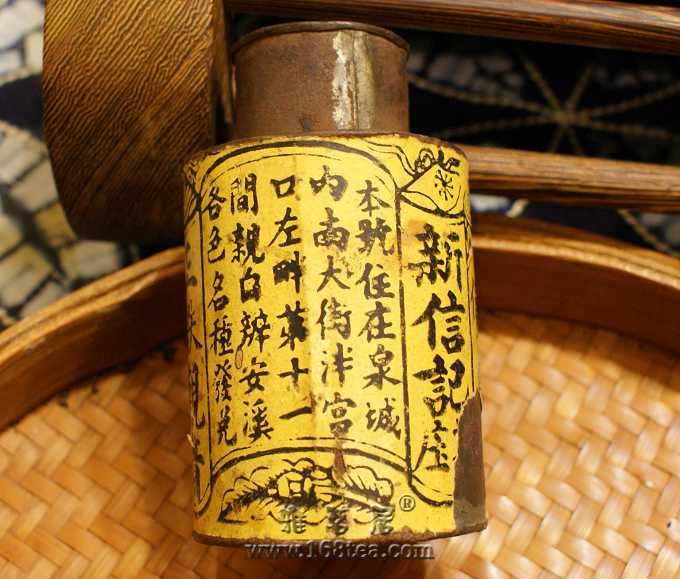 新信記
本號住在泉城
內南大街泮宮
口左畔第十一
間親自辨安溪
各色名種發兌
雅茗居®
www.168tea.com